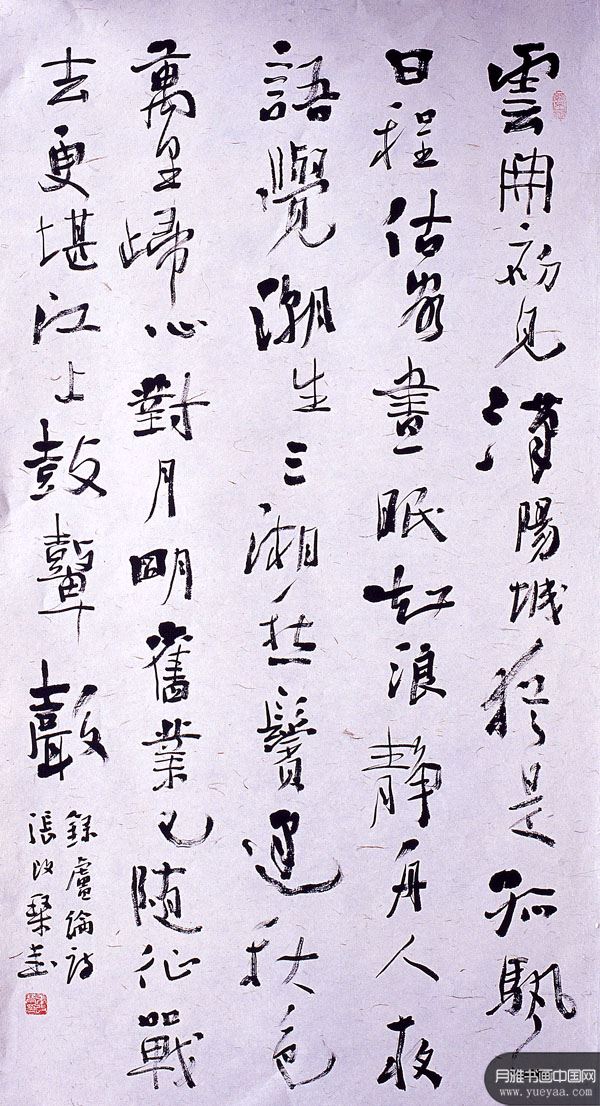 雲開初見漢陽城猶是孤颿
日程估客晝眠知浪靜舟人夜
語覺潮生三湘愁鬢秋色
萬里歸心對月明舊業已隨征戰
去更堪江上鼓鼙聲
錄盧綸詩
張改琴書
月雅书画中国网
www.yueyaa.com